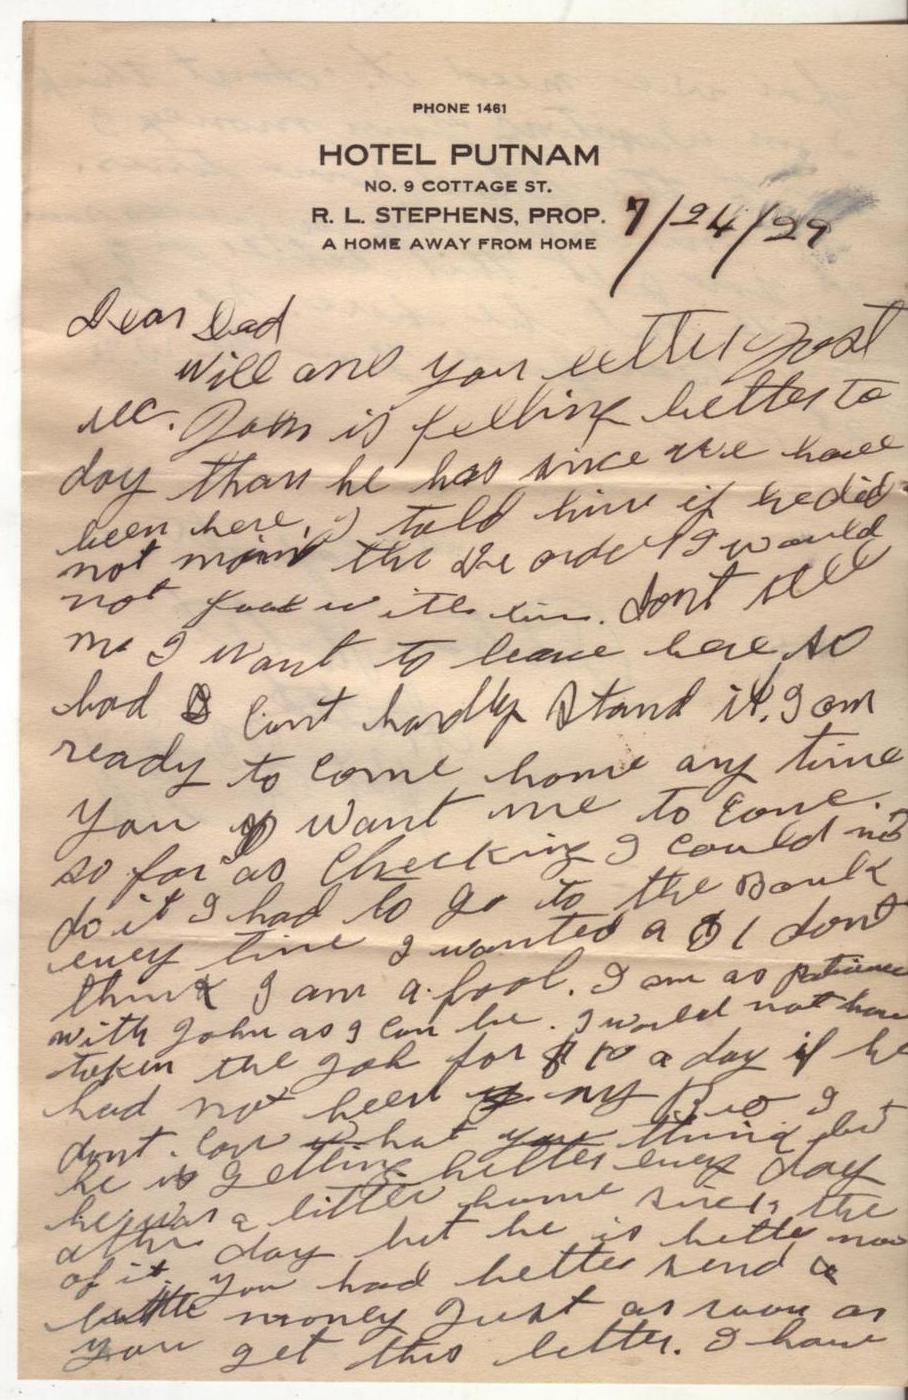 PHONE 1461
HOTEL PUTNAM
NO. 9 COTTAGE ST.
R. L. STEPHENS, PROP.
A HOME AWAY FROM HOME
7/24/29
Dear Dad
Will ans your letter Just
rec. John is felling better to
day than he has since we have
been here, I told him if he did
not mind the Dr order I would
not fool with him. dont tell
me I want to leave here, so
bad I Cant hardly Stand it, I am
ready to come home any time
You want me to Come.
so far as Checking I could not
do it I had to go to the Bank
every time I wanted a $1 dont
think I am a fool. I am as patience
with John as I can be. I would not have
taken the Job for $10 a day if he
had not been my Bro I
dont. Care what you think but
he is getting better every day
he was a little home sick the
other day but he is better now
of it. You had better send a
little money Just as soon as
you get this letter. I have